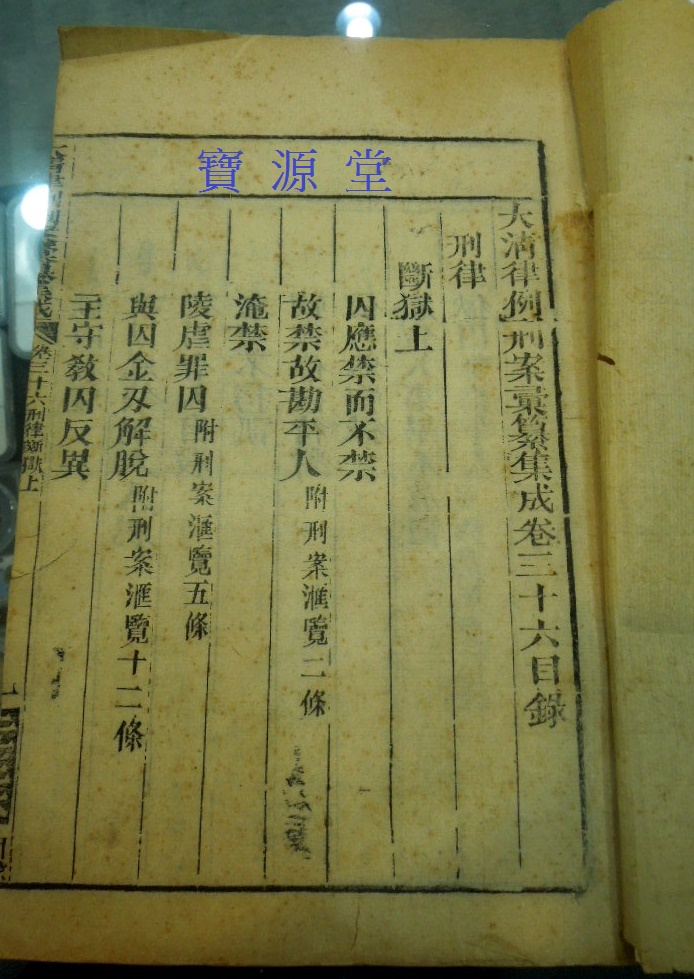 寶源堂
大清律例刑案彙纂集成卷三十六目錄
刑律
斷獄上
囚應禁而不禁
故禁故勘平人附刑案滙覽二條
淹禁
陵虐罪囚附刑案滙覽五條
與囚金刃解脫附刑案滙覽十二條
主守教囚反異
卷三十六刑律斷獄上